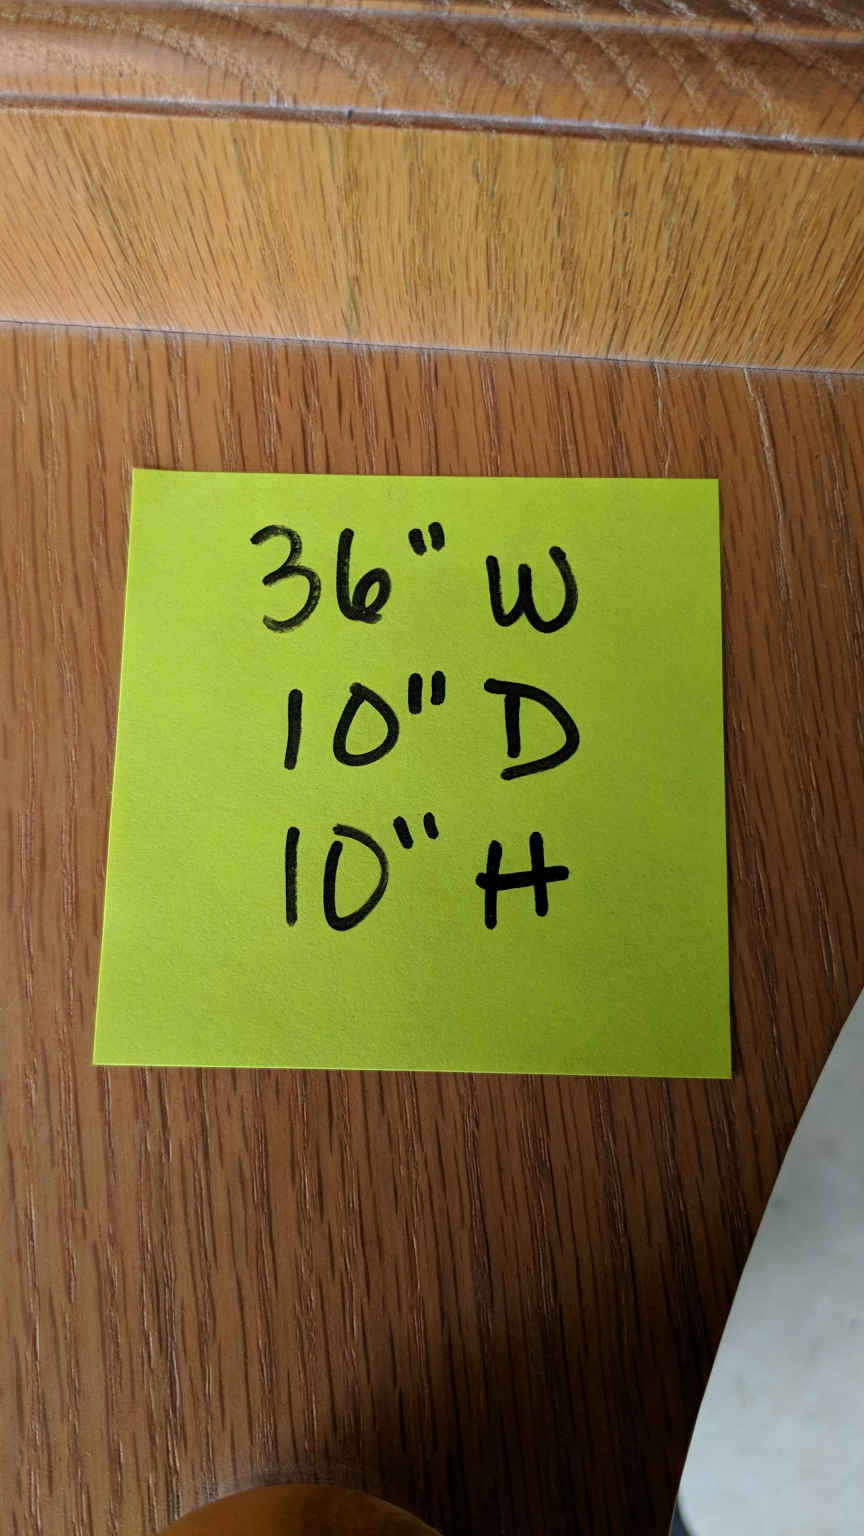 36" W
10" D
10" H